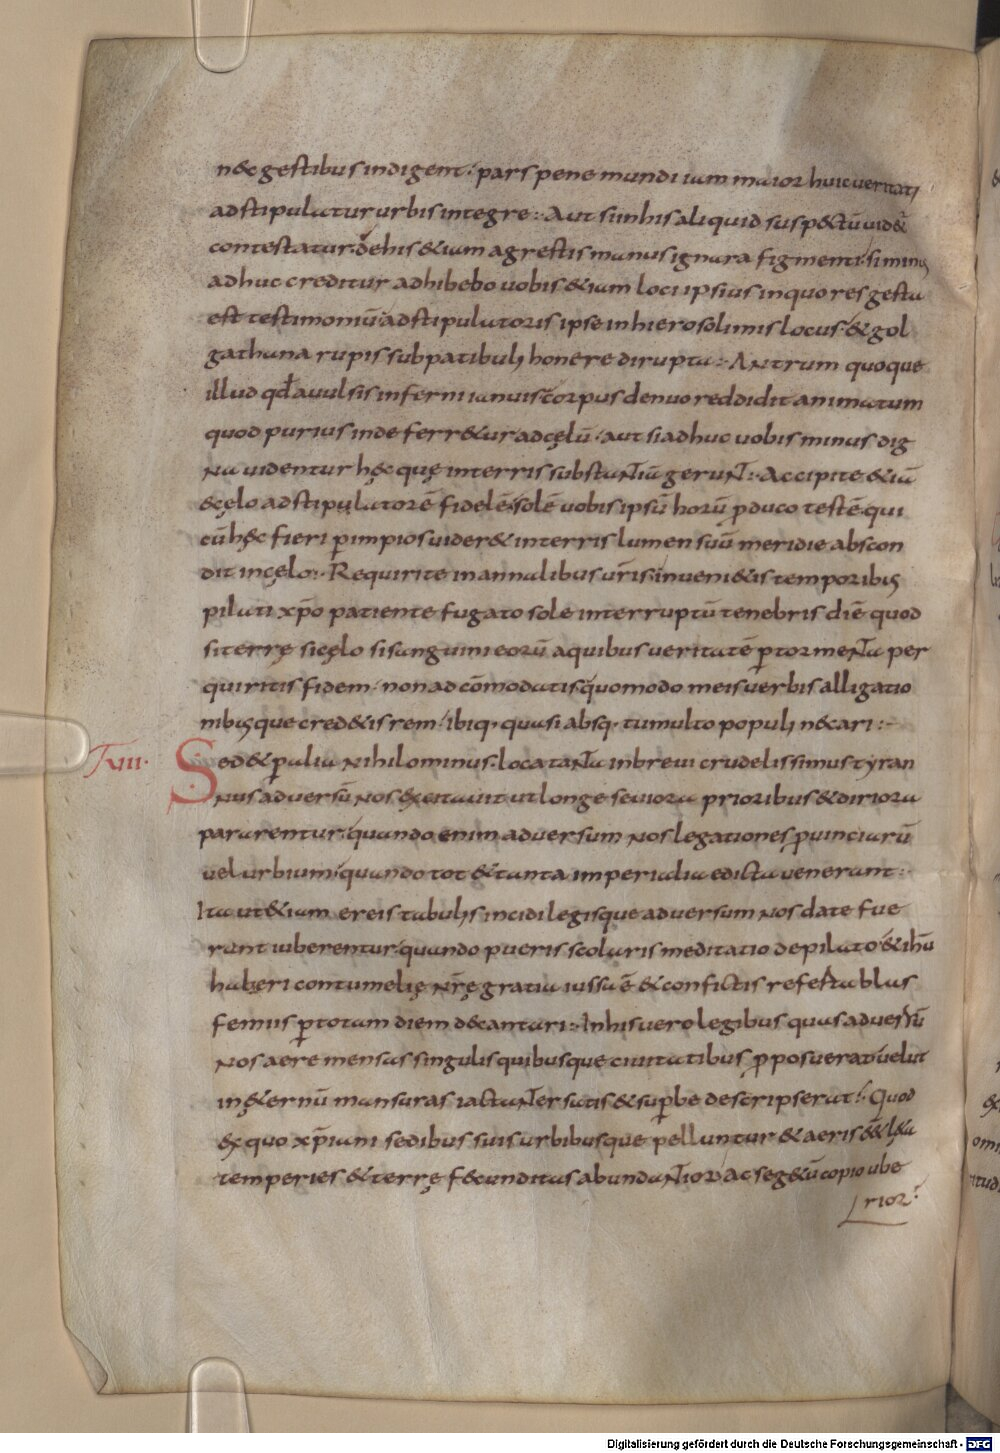 n&c gestibus indigent: pars pene mundi iam maior huic ueritati
adstipulatur urbis integre:. Aut si in his aliquid suspectū uid&̄
contestatur. de his &iam agrestis manus ignara figmenti. si minus
adhuc creditur adhibebo uobis &iam loci ipsius in quo res gesta
est testimoniū: adstipulatoris ipse in hierosolimis locus. & gol
gathana rupis sub patibuli honere dirupta:. Antrum quoque
illud qđ auulsis inferni ianuis corpus denuo reddidit animatum
quod purius inde ferr&ur ad cęlū. aut si adhuc uobis minus dig
na uidentur hęc quę in terris substantiā gerunt:. Accipite &iā
& cęlo adstipulatorē fidelē. solē uobis ipsū horū ꝓduco testē. qui
cū hęc fieri ꝑ impios uider& in terris lumen suū meridie abscon
dit in cęlo:. Requirite in annalibus urīs. inueni&is temporibꝰ
pilati xp̄o patiente fugato sole interruptū tenebris diē quod
si terrę si cęlo si sanguini eorū a quibus ueritatē ꝑ tormenta per
quiritis fidem. non adcōmodatis quomodo meis uerbis alligatio
nibꝰque cred&is rem. ibiq. quasi absq. tumulto populi n&cari:-
Txiii. Sed & ꝑ alia nihilominus. locatanta in breui crudelissimus tyran
nus aduersū nos excitauit ut longe seuiora prioribus & diriora
pararentur. quando enim aduersum nos legationes ꝓuinciarū
uel urbium. quando tot & tanta imperialia edicta uenerant:.
Ita ut &iam ereis tabulis incidi legisque aduersum nos date fue
rant iuberentur. quando pueris scolaris meditatio de pilato & ihū
haberi contumelię nr̄ę gratia iussa ē & confictis referta blas
femiis ꝑ totam diem d&cantari:. In his uero legibus quas aduersū
nos aere mensas singulis quibusque ciuitatibus ꝓposuerat uelut
in &ernū mansuras iactanter satis & suꝑbe descripserat:. Quod
ex quo xp̄iani sedibus suis urbibusque pelluntur & aeris & l&a
temperies & terrę f&cunditas abundantior ac seg&ū copio ube
rior:
Digitalisierung gefördert durch die Deutsche Forschungsgemeinschaft - DFG